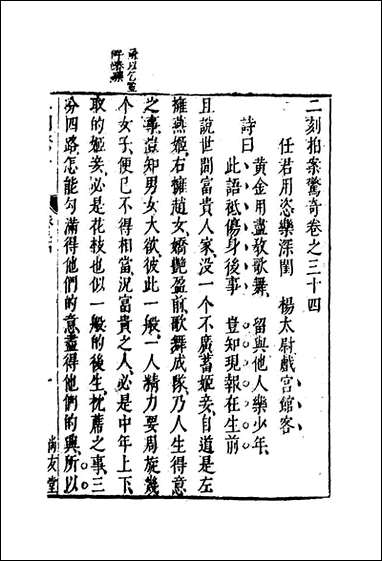 二刻拍案驚奇卷之三十四
任君用恣樂深閨　楊太尉戲宮館客
詩曰
黃金用盡敎歌舞　留與他人樂少年
此語秪傷身後事　豈知現報在生前
且說世間富貴人家、没一个不廣蓄姬妾、自道是左
擁燕姬、右擁趙女、嬌艷盈前、歌舞成隊、乃人生得意
之事、豈知男女大欲、彼此一般、一人精力要周旋幾
个女子、便已不得相當、况富貴之人、必是中年上下、
取的姬妾、必是花枝也似一般的後生、枕蓆之事、三
分四路、怎能勾滿得他們的意、盡得他們的興、所以
尚友堂